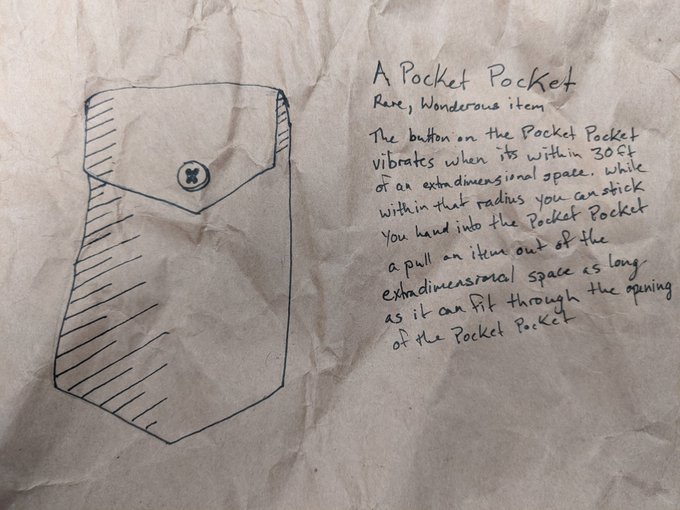 A Pocket Pocket
Rare, Wonderous item
The button on the Pocket Pocket
vibrates when its within 30ft
of an extradimensional space. While
within that radius you can stick
you hand into the Pocket Pocket
a pull an item out of the
extradimensional space as long
as it can fit through the opening
of the Pocket Pocket